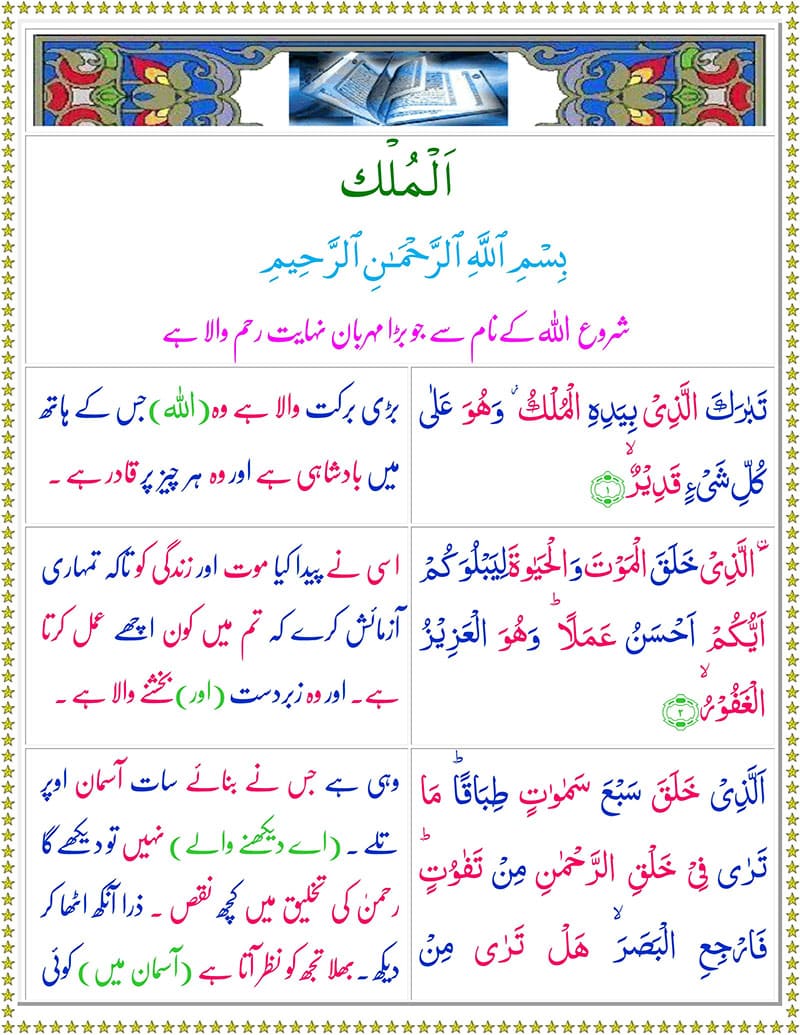 اَلْمُلْك
بِسْمِ ٱللَّهِ ٱلرَّحْمَـٰنِ ٱلرَّحِيمِ
شروع اللہ کےنام سے جو بڑا مہربان نہایت رحم والا ہے
تَبٰرَكَ الَّذِیْ بِیَدِهِ الْمُلْكُ ۫ وَهُوَ عَلٰی
كُلِّ شَیْءٍ قَدِیْرُ ۙ ﴿۱﴾
بڑی برکت والا ہے وہ (اللہ) جس کے ہاتھ
میں بادشاہی ہے اور وہ ہر چیز پر قادر ہے ۔
ۨالَّذِیْ خَلَقَ الْمَوْتَ وَالْحَیٰوةَ لِیَبْلُوَكُمْ
اَیُّكُمْ اَحْسَنُ عَمَلًا ؕ وَهُوَ الْعَزِیْزُ
الْغَفُوْرُ ۙ ﴿۲﴾
اسی نے پیدا کیا موت اور زندگی کو تاکہ تمہاری
آزمائش کرے کہ تم میں کون اچھے عمل کرتا
ہے۔ اور وہ زبردست (اور) بخشنے والا ہے ۔
اَلَّذِیْ خَلَقَ سَبْعَ سَمٰوٰتٍ طِبَاقًا ؕ مَا
تَرٰی فِیْ خَلْقِ الرَّحْمٰنِ مِنْ تَفٰوُتٍ ؕ
فَارْجِعِ الْبَصَرَ ۙ هَلْ تَرٰی مِنْ
وہی ہے جس نے بنائے سات آسمان اوپر
تلے ۔ (اے دیکھنے والے) نہیں تو دیکھے گا
رحمٰن کی تخلیق میں کچھ نقص ۔ ذرا آنکھ اٹھا کر
دیکھ۔ بھلا تجھ کو نظر آتا ہے (آسمان میں) کوئی